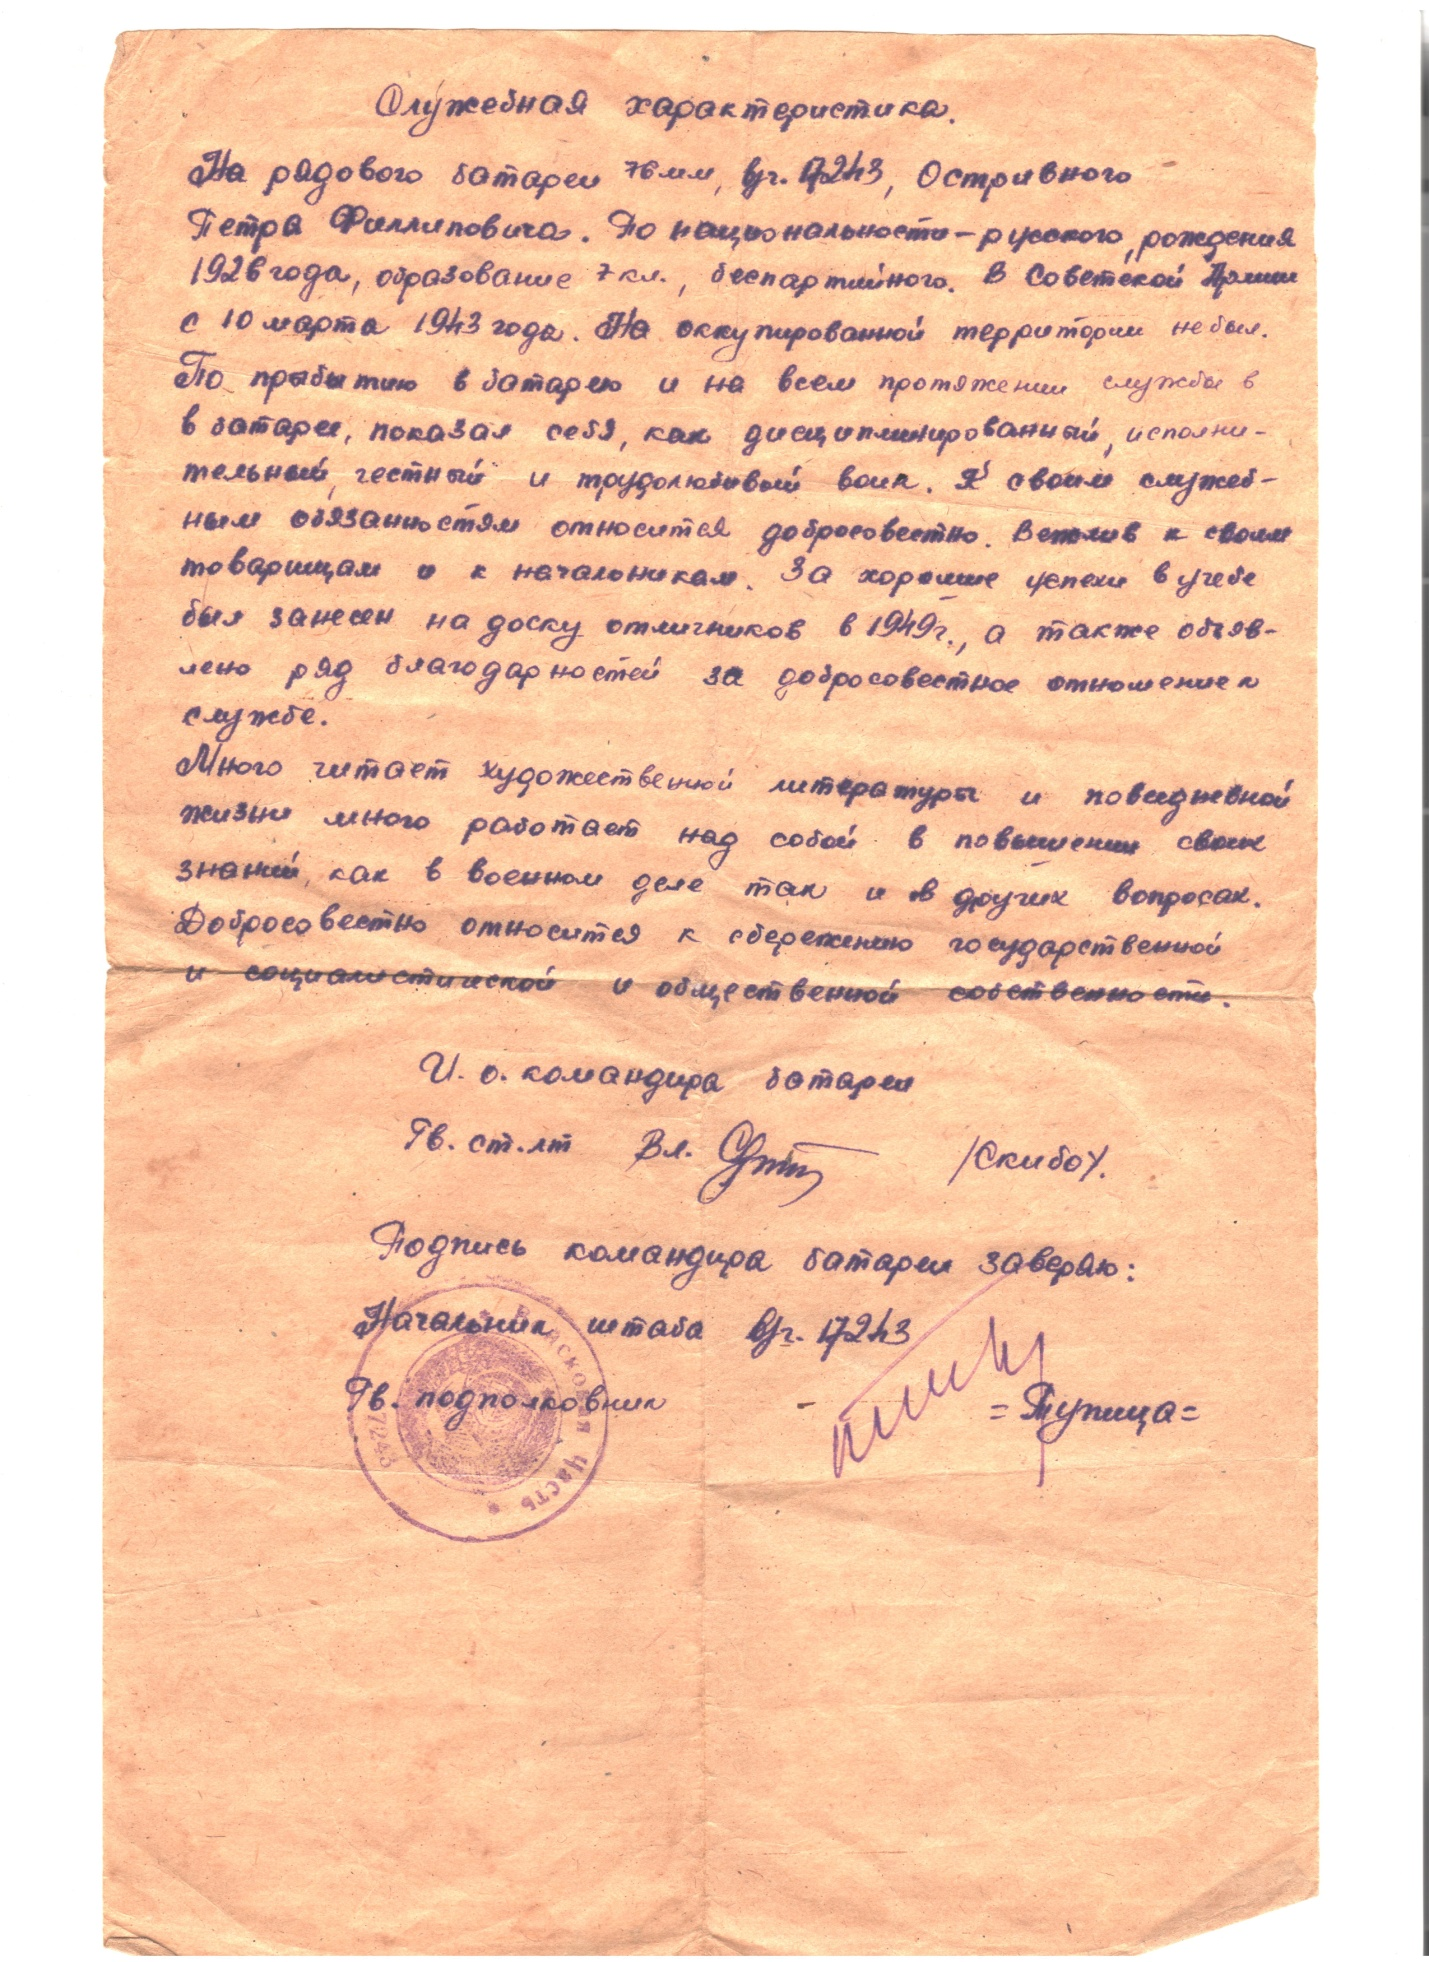 Служебная характеристика.
На рядового батареи 76 мм, в/ч. 17243, Остривного
Петра Филлиповича. По национальности – русского, рождения
1926 года, образование 7 кл., беспартийного. В Советской Армии
с 10 марта 1943 года. На оккупированной территории не был.
По прибытию в батарею и на всем протяжении службы в
в батареи, показал себя, как дисциплинированный, исполни-
тельный, честный и трудолюбивый воин. К своим служеб-
ным обязанностям относится добросовестно. Вежлив к своим
товарищам и к начальникам. За хорошие успехи в учебе
был занесен на доску отличников в 1949 г., а также объяв-
лено ряд благодарностей за добросовестное отношение к
службе.
Много читает художественной литературы и повседневной
жизни много работает над собой в повышении своих
знаний, как в военном деле так и в других вопросах.
Добросовестно относится к сбережению государственной
и социалистической и общественной собственности.
И. о. командира батареи
Гв. ст. лт Вл. /Скибо/.
Подпись командира батареи заверяю:
Начальник штаба в/ч. 17243
Гв. подполковник =Тупица=
Войсковая часть